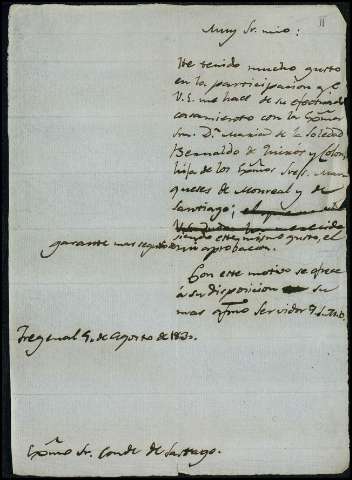 11
Muy Sr. mio:
He tenido mucho gusto
en la participacion q.e
V.E. me hace de su efectuado
casamiento con la Exma
Sra. D.a Maria de la Soledad
Bernaldo de Quirós y Colon
hija de los Exmos Sres. Mar
queses de Monreal y de
Santiago;
siendo este mismo gusto, el
garante mas seguro de mi aprobacion.
Con este motivo se ofrece
á su disposicion su
mas afmo Servidor Q. S. M. B.
Fregenal 9. de Agosto de 1830.
Exmo Sr. Conde de Sastago.